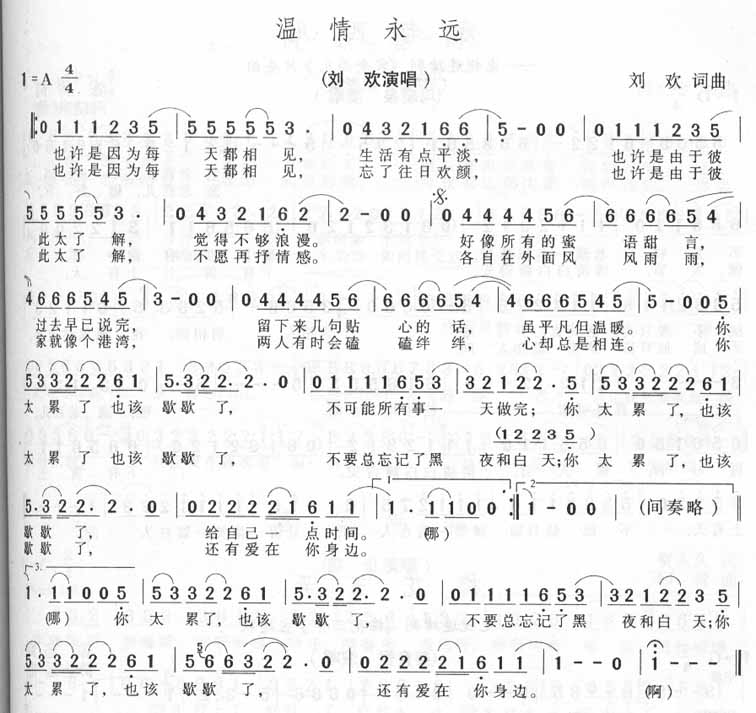 温情永远
1=A 4/4 (刘 欢演唱) 刘 欢 词曲
0 1 1 1 2 3 5 | 5 5 5 5 5 3 · | 0 4 3 2 1 6 6 | 5 - 0 0 | 0 1 1 1 2 3 5
也许是因为每 天都相 见, 生活有点平淡, 也许是由于彼
也许是因为每 天都相 见, 忘了往日欢颜, 也许是由于彼
5 5 5 5 5 3 · | 0 4 3 2 1 6 2 | 2 - 0 0 | 0 4 4 4 4 5 6 | 6 6 6 6 5 4
此太了 解, 觉得不够浪漫。 好像所有的蜜 语甜 言,
此太了 解, 不愿再抒情感。 各自在外面风 风雨雨,
4 6 6 6 5 4 5 | 3 - 0 0 | 0 4 4 4 4 5 6 | 6 6 6 6 5 4 | 0 6 6 6 5 4 5 | 5 - 0 0 5
过去早已说完, 留下来几句贴 心的 话, 虽平凡但温暖。 你
家就像个港湾, 两人有时会磕 磕绊 绊, 心却总是相连。 你
5 3 3 2 2 2 6 1 | 5 · 3 2 2 · 2 · 0 | 0 1 1 1 1 6 5 3 | 3 2 1 2 2 · 5 | 5 3 3 2 2 2 6 1
太 累 了 也该 歇歇 了, 不可能所有事一 天做完; 你 太 累 了,也该
(1 2 2 3 5)
太 累 了 也该 歇歇 了, 不要总忘记了黑 夜和白 天;你 太 累 了,也该
5 · 3 2 2 · 2 · 0 | 0 2 2 2 2 1 6 1 1 | 1 · 1 1 0 0 :| 1 - 0 0 | (间奏略)
1. 2.
歇歇 了, 给自己一 点时间。 (哪)
歇歇 了, 还有爱在 你身边。
3.
1 · 1 1 0 0 5 | 5 3 3 2 2 2 6 1 | 5 · 3 2 2 · 2 · 0 | 0 1 1 1 1 6 5 3 | 3 2 1 2 2 · 5
(哪) 你 太 累 了,也该 歇歇 了, 不要总忘记了黑 夜和白 天;你
5 3 3 2 2 2 6 1 | 5 6 6 3 2 2 · 2 · 0 | 0 2 2 2 2 1 6 1 1 | 1 · 0 | 1 - - -
太 累 了,也该 歇歇 了, 还有爱在 你身边。 (啊)